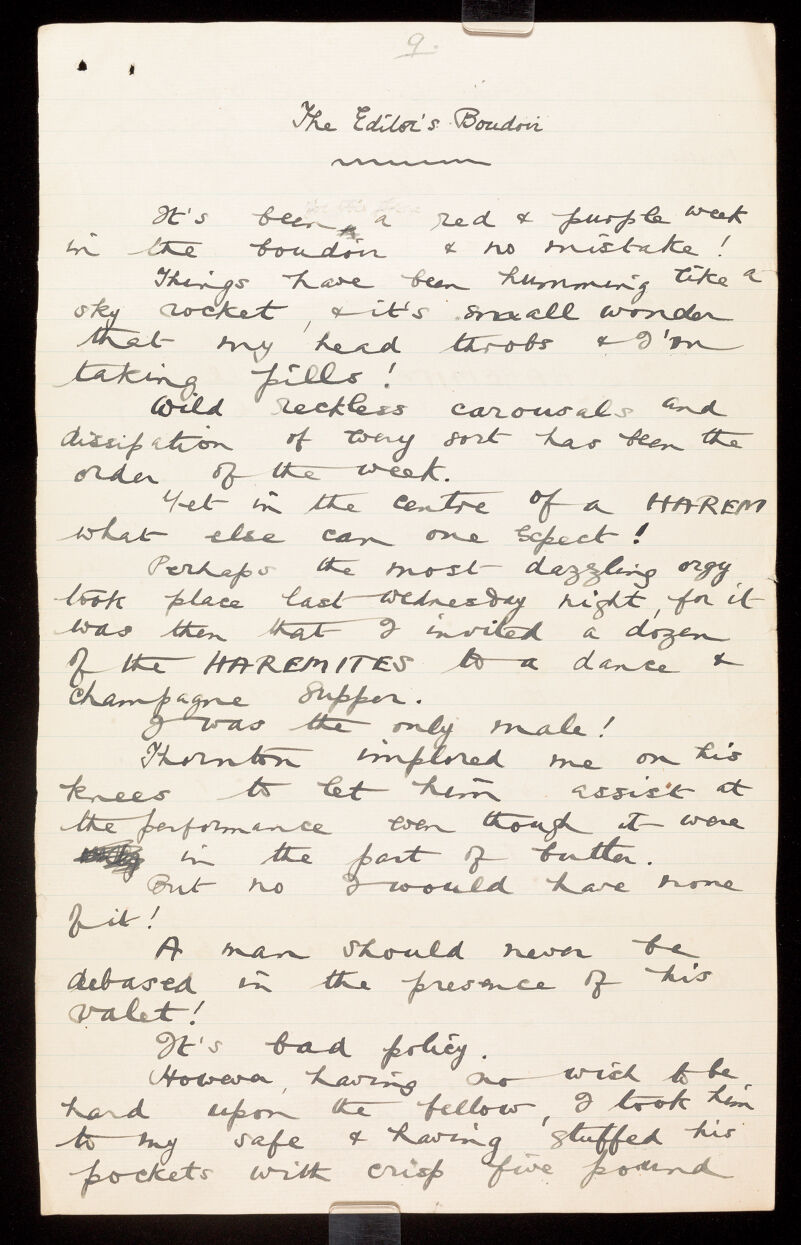 9.
The Editor's Boudoir
It's been a red & purple week
in the boudoir & no mistake!
Things have been humming like a
sky rocket, & it's small wonder
that my head throbs & I'm
taking pills!
Wild reckless carousals and
dissipation of every sort has been the
order of the week.
Yet in the centre of a HAREM
what else can one expect!
Perhaps the most dazzling orgy
took place last Wednesday night, for it
was then that I invited a dozen
of the HAREMITES to a dance &
champagne supper.
I was the only male!
Thornton implored me on his
knees to let him assist at
the performance even though it were
in the part of butler.
But no I would have none
of it!
A man should never be
debased in the presence of his
valet!
It's bad policy.
However, having no wish to be
hard upon the fellow, I took him
to my safe & having stuffed his
pockets with crisp five pound